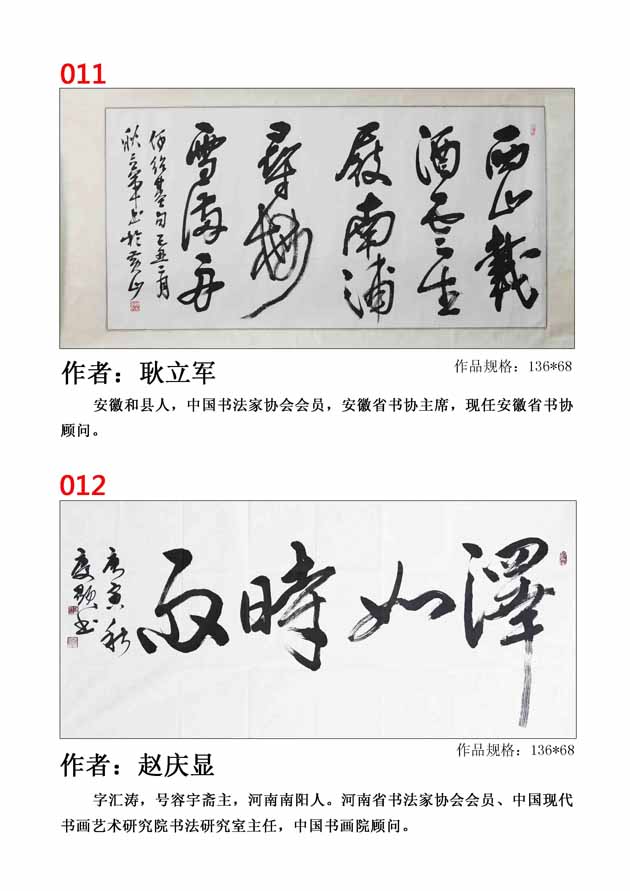 011
西山載
酒雲生
屐南浦
尋梅
雪滿舟
何紹基句
秋立軍書於黄山
作者：耿立军
作品规格：136*68
安徽和县人，中国书法家协会会员，安徽省书协主席，现任安徽省书协
顾问。
012
澤如時雨
庚寅秋
慶顯書
作者：赵庆显
作品规格：136*68
字汇涛，号容宇斋主，河南南阳人。河南省书法家协会会员、中国现代
书画艺术研究院书法研究室主任，中国书画院顾问。